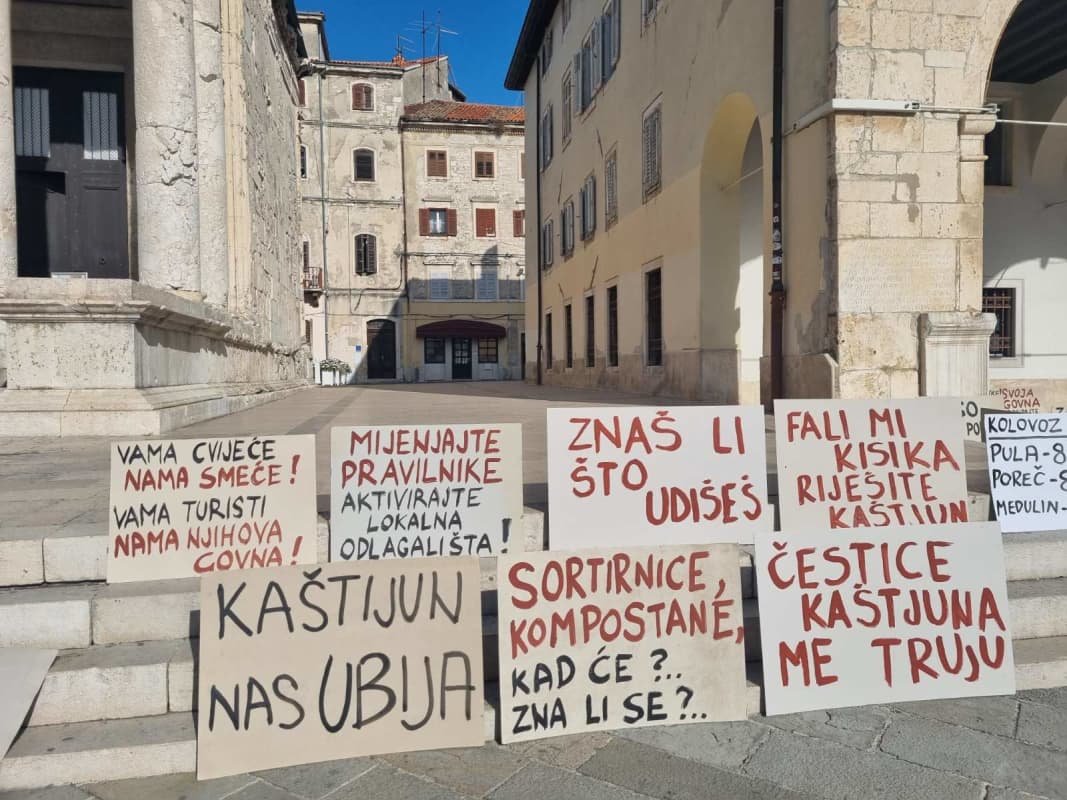 VAMA CVIJEĆE
NAMA SMEĆE!
VAMA TURISTI
NAMA NJIHOVA
GOVNA!
MIJENJAJTE
PRAVILNIKE
AKTIVIRAJTE
LOKALNA
ODLAGALIŠTA!
ZNAŠ LI
ŠTO
UDIŠEŠ
FALI MI
KISIKA
RIJEŠITE
KAŠTIJUN
SVOJA
GOVNA
KOLOVOZ
PULA-8
POREČ-8
MEDULIN-
KAŠTIJUN
NAS UBIJA
SORTIRNICE,
KOMPOSTANE,
KAD ĆE?..
ZNA LI SE?..
ČESTICE
KAŠTJUNA
ME TRUJU